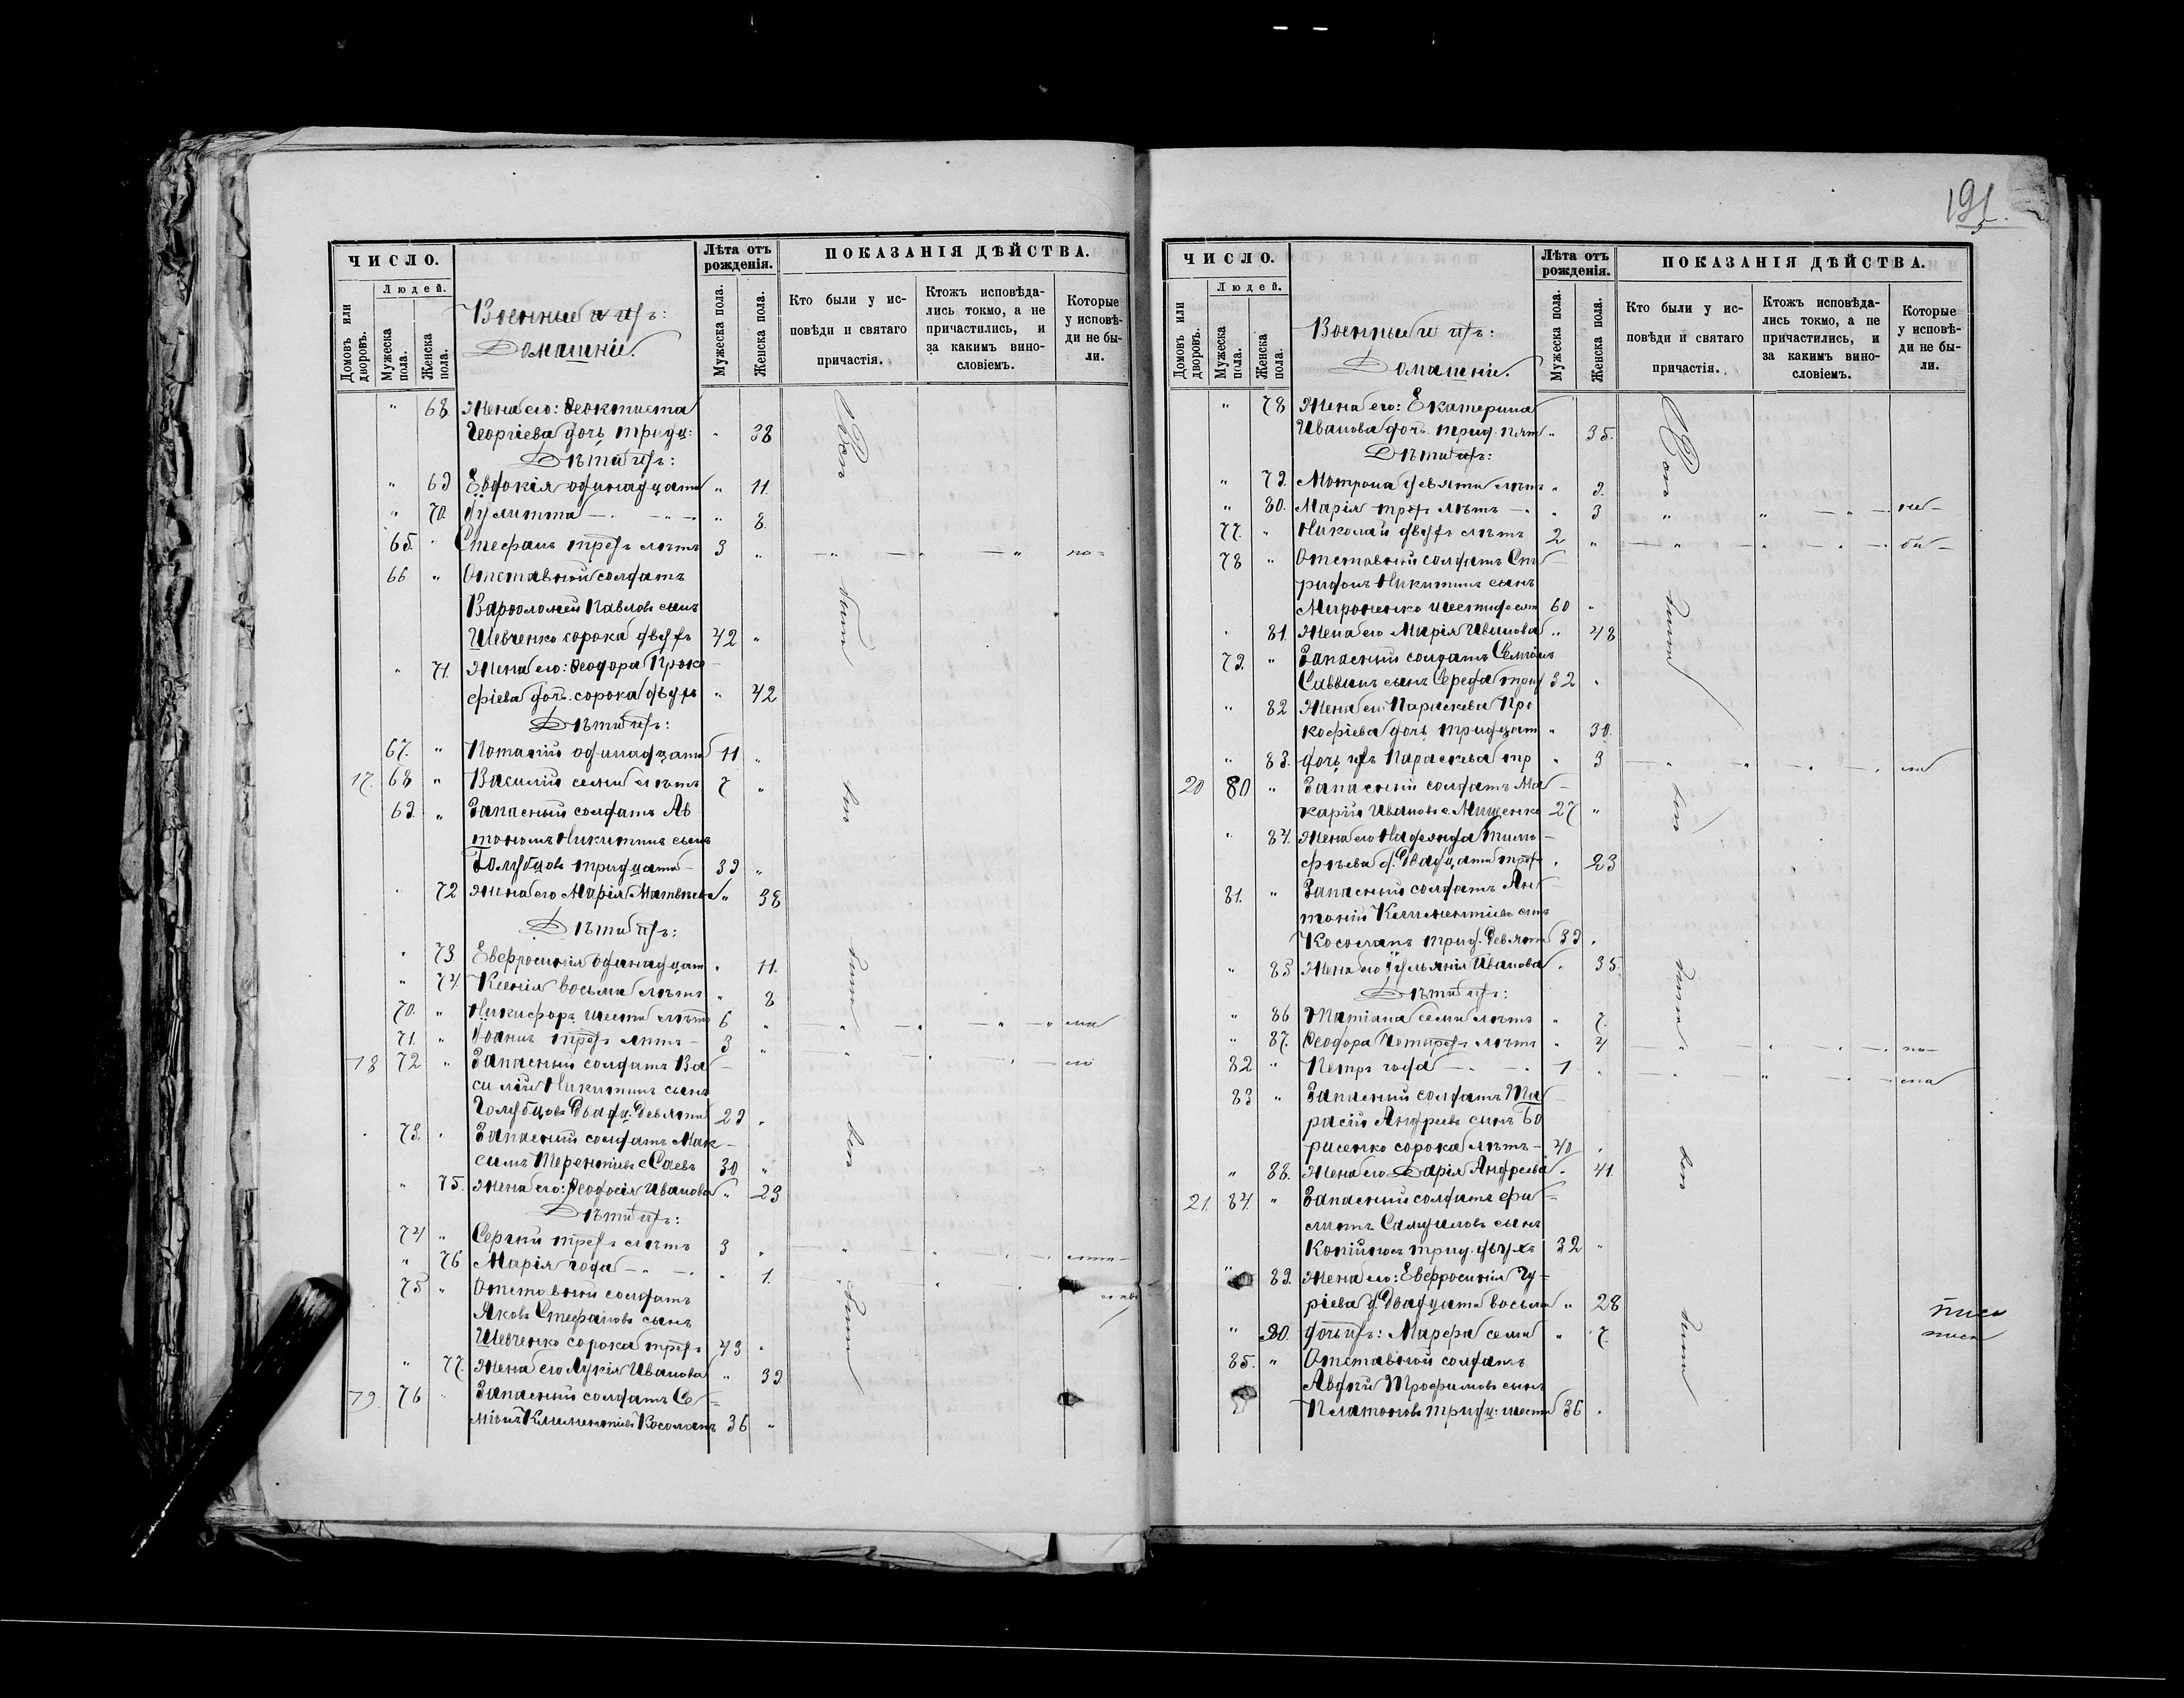 191.
ЧИСЛО.
Людей.
Домовъ или дворовъ.
Мужеска пола.
Женска пола.
Военные и ихъ:
Домашніе.
Лѣта отъ рожденія.
Мужеска пола.
Женска пола.
ПОКАЗАНІЯ ДѢЙСТВА.
Кто были у исповѣди и святаго причастія.
Ктожъ исповѣдались токмо, а не причастились, и за какимъ винословіемъ.
Которые у исповѣди не были.
" 68 Жена его: Ѳеоктиста
Георгіева дочь тридц: " 38
Дѣти ихъ:
" 69 Евдокія одинадцати " 11.
" 70. Іулитта — " — " 8.
65. " Стефанъ трехъ лѣтъ 3 "
66 " Отставной солдатъ
Варѳоломей Павловъ сынъ
Шевченко сорока двухъ 42 "
" 71. Жена его: Ѳеодора Проко-
фіева дочь сорока двухъ " 42
Дѣти ихъ:
67. " Потапій одинадцати 11 "
17. 68 " Василій семи лѣтъ 7 "
69. " Запасный солдатъ Ав
тономъ Никитинъ сынъ
Голубцовъ тридцати — 39 "
" 72 Жена его Марія Матвѣева " 38
Дѣти ихъ:
" 73. Евфросинія одинадцат " 11.
" 74 Ксенія восьми лѣтъ " 8
70. " Никифоръ шести лѣтъ 6 "
71. " Іоаннъ трехъ лѣтъ — 3 "
18 72 " Запасный солдатъ Ва
силій Никитинъ сынъ
Голубцовъ двадц. девяти 29 "
73. " Запасный солдатъ Мак-
симъ Терентіевъ с Саевъ 30 "
" 75. Жена его: Ѳеодосія Иванова " 29
Дѣти ихъ:
74 " Сергій трехъ лѣтъ 3 "
" 76 Марія года — " — " 1.
75 " Отставной солдатъ
Яковъ Стефановъ сынъ
Шевченко сорока трехъ 43 "
" 77. Жена его Лукія Иванова " 39
19. 76 " Запасный солдатъ Се=
міонъ Климентіевъ Косолапъ 36 "
ЧИСЛО.
Людей.
Домовъ или дворовъ.
Мужеска пола.
Женска пола.
Военные и ихъ:
Домашніе.
Лѣта отъ рожденія.
Мужеска пола.
Женска пола.
ПОКАЗАНІЯ ДѢЙСТВА.
Кто были у исповѣди и святаго причастія.
Ктожъ исповѣдались токмо, а не причастились, и за какимъ винословіемъ.
Которые у исповѣди не были.
" 78 Жена его: Екатерина
Иванова дочь трид. пят " 35.
Дѣти ихъ:
" 79. Мотрона девяти лѣтъ " 9.
" 80. Марія трехъ лѣтъ — " 3
77. " Николай двухъ лѣтъ 2 "
78 " Отставной солдатъ Спи
ридонъ Никитинъ сынъ
Мироненко шестидесят 60 "
" 81. Жена его Марія Иванова " 48
79. " Запасный солдатъ Семіонъ
Саввинъ сынъ Середа трид 32 "
" 82 Жена его Параскева Про
кофіева дочь тридцати " 30.
" 83. дочь ихъ Параскева тр " 3
20 80 " Запасный солдатъ Ма
карій Ивановъ с. Мищенко 27 "
" 84. Жена его Надежда Тимо-
фѣева д. двадцати трех " 23
81. " Запасный солдатъ Ан-
тоній Климентіевъ сынъ
Косолапъ трид. девяти 39 "
" 85 Жена его Іуліанія Иванова " 35.
Дѣти ихъ:
" 86 Татіана семи лѣтъ " 7.
" 87. Ѳеодора четырехъ лѣтъ " 4
82 " Петръ года — " — 1 "
83 " Запасный солдатъ Та
расій Андреевъ сынъ Бо
рисенко сорока лѣтъ — 40 "
" 88. Жена его Дарія Андреева " 41.
21. 84. " Запасный солдатъ Фи=
липпъ Самуиловъ сынъ
Копійка трид. двухъ 32 "
" 89. Жена его: Евфросинія Гу-
ріева д. двадцати восьми " 28
" 90. дочь ихъ: Марфа семи " 7.
85. " Отставной солдатъ
Авдій Трофимовъ сынъ
Платоновъ тридц: шести 36 "